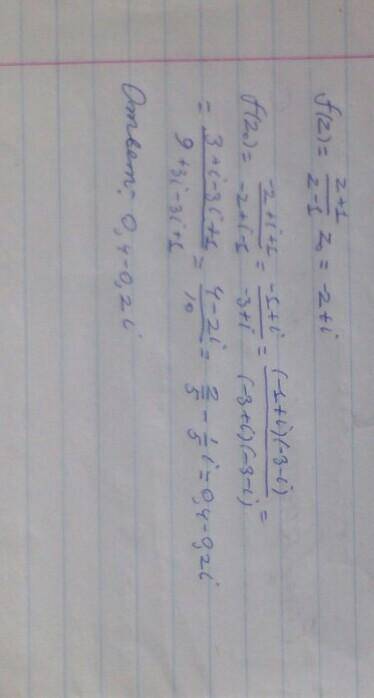 f(z) = z+1/z-1 z₀ = -2+i
f(z₀) = -2+i+1/-2+i-1 = -1+i/-3+i = (-1+i)(-3-i)/(-3+i)(-3-i) =
= 3+i-3i+1/9+3i-3i+1 = 4-2i/10 = 2/5 - 1/5 i = 0,4-0,2i
Ответ: 0,4-0,2i